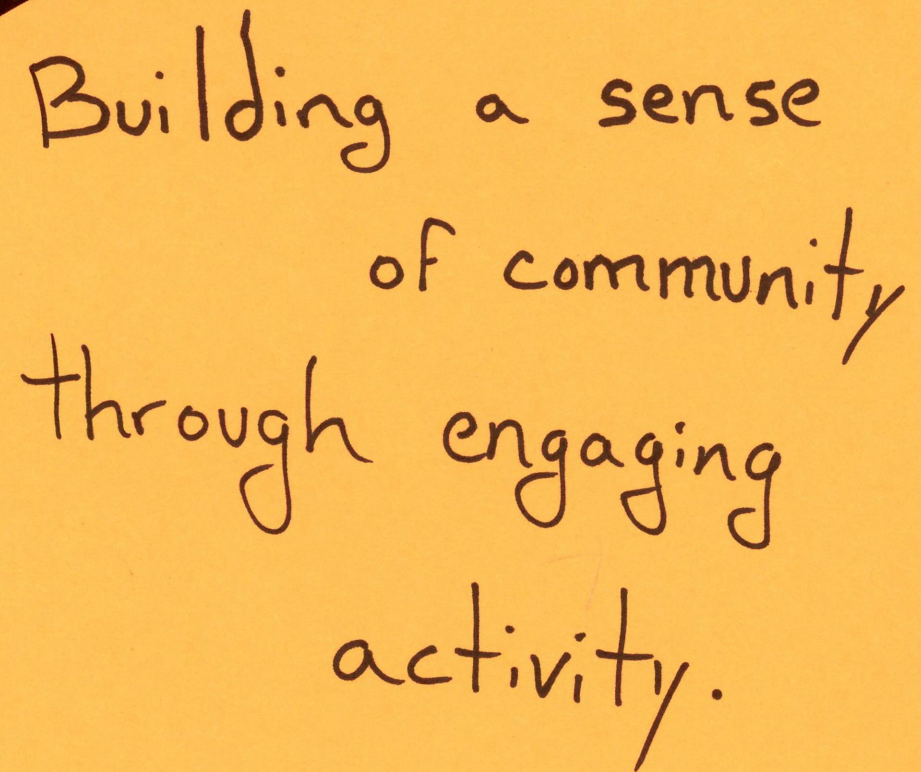 Building a sense
of community
through engaging
activity.